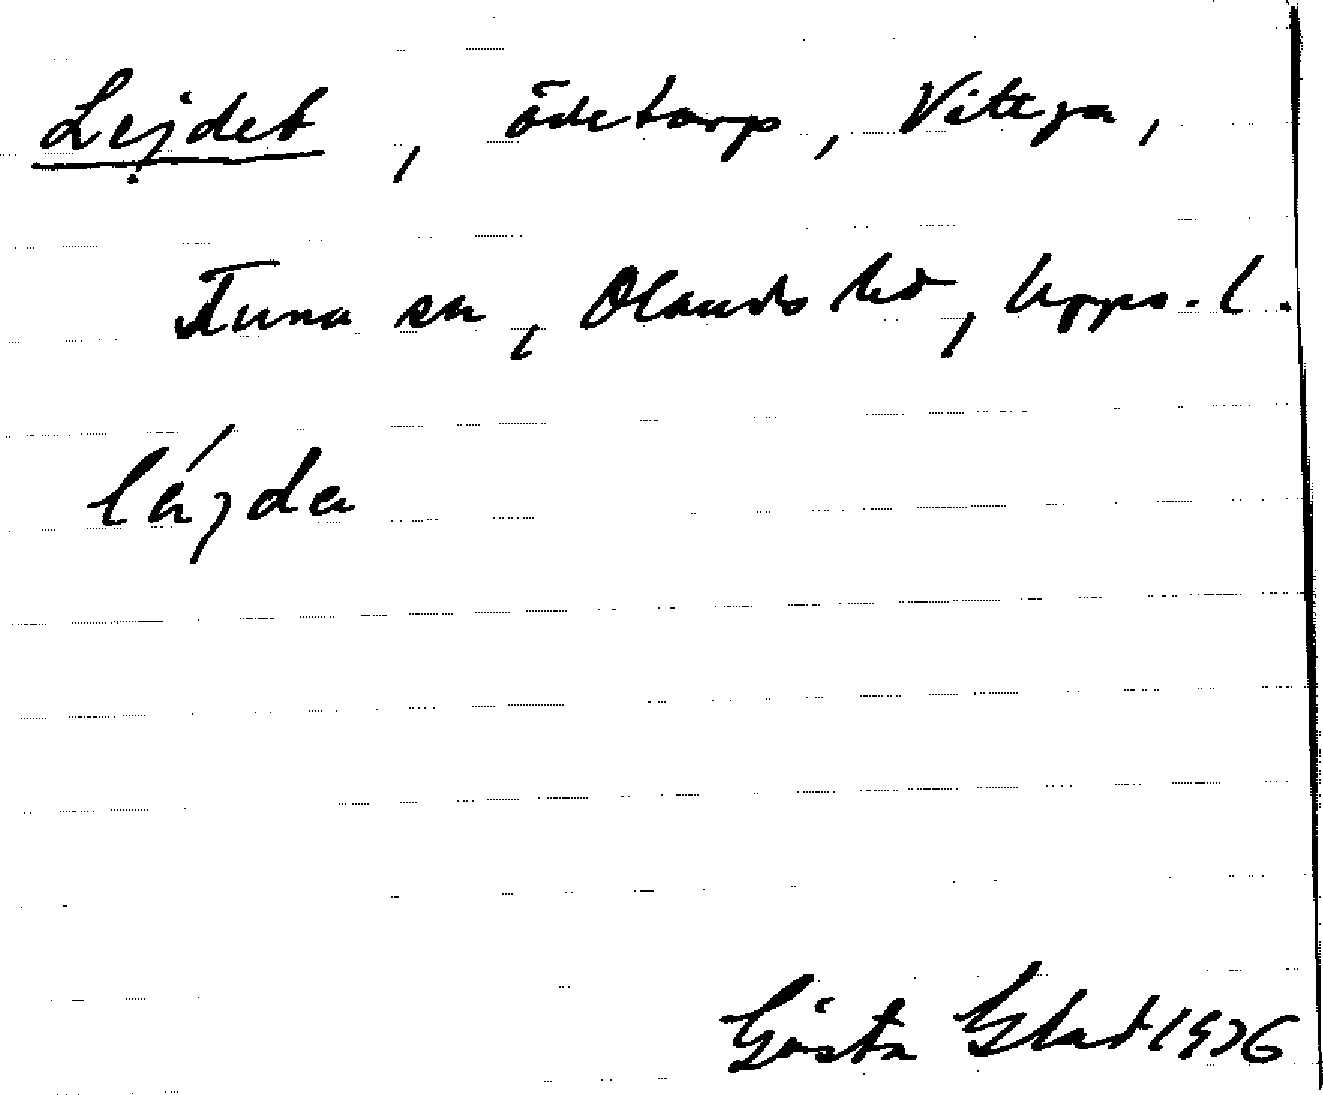 Lejdet, ödetorp, Vittja,
Tuna sn, Olands hd, Upps. l.
lájda
Gösta Glad 1976